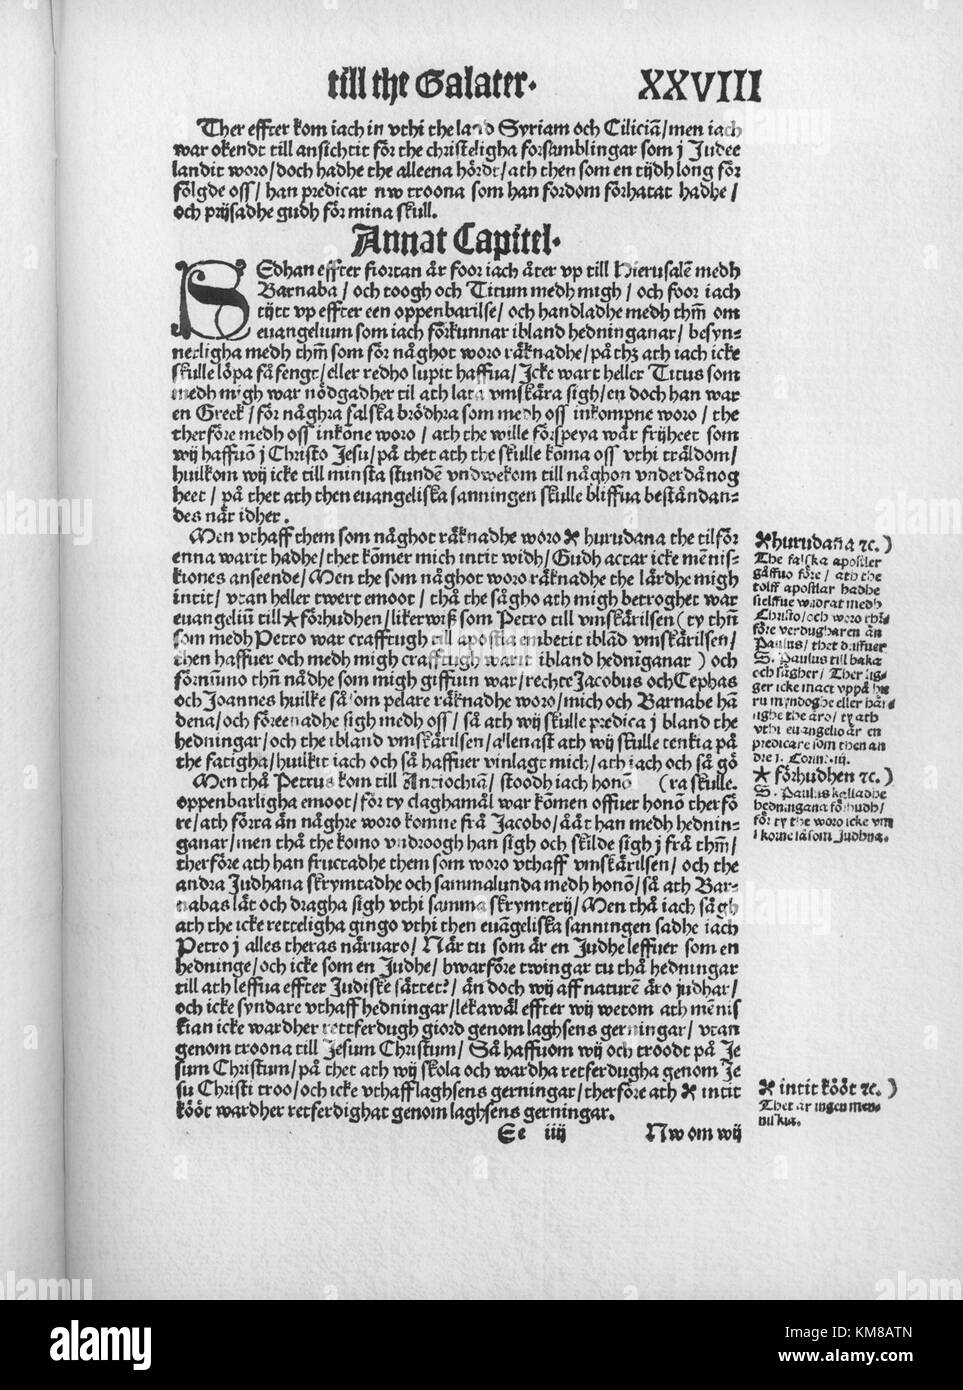 till the Galater. XXVIII
Ther effter kom iach in vthi the land Syriam och Ciliciā/men iach
war okendt till ansichtit för the christeligha forsamblingar som j Judee
landit woro/doch hadhe the alleena hördt/ath then som en tijdh long för
fölgde oss/ han predicar nw troona som han fordom förhatat hadhe/
och prijsadhe gudh för mina skull.
Annat Capitel.
SEdhan effter fiortan år foor iach åter vp till Hierusalē medh
Barnaba/ och toogh och Titum medh migh/ och foor iach
tijtt vp effter een oppenbarilse/ och handladhe medh thm̄ om
euangelium som iach förkunnar ibland hedninganar/ besyn-
nerligha medh thm̄ som för någhot woro räknadhe/ på thz ath iach icke
skulle löpa fåfengt/eller redho lupit haffua/ Jcke wart heller Titus som
medh migh war nödgadher til ath lata vmskära sigh/en doch han war
en Greek/ för någhra falska brödhra som medh oss inkompne woro/ the
ther före medh oss inkōne woro/ ath the wille förspeya wår frijheet som
wij haffuō j Christo Jesu/på thet ath the skulle kōma oss vthi träldom/
huilkom wij icke till minsta stundē vndwekom till någhon vnderdånog
heet/ på thet ath then euangeliska sanningen skulle bliffua beståndan-
des når idher.
Men vthaff them som någhot räknadhe woro ✠ hurudana the tilför
enna warit hadhe/thet kōmer mich intit widh/Gudh actar icke mēnis-
kiones anseende/Men the som någhot woro räknadhe the lärdhe migh
intit/ vtan heller twert emoot/ thå the sågho ath migh betroghet war
euangeliū till★förhudhen/likerwijss som Petro till vmskärilsen(ty thn̄
som medh Petro war crafftugh till apostla embetit iblād vmskärilsen/
then haffuer och medh migh crafftugh warit ibland hednīganar) och
förnūmo thn̄ nådhe som migh giffuin war/rechte Jacobus och Cephas
och Joannes huilke såsom pelare räknadhe woro/mich och Barnabe hā
dena/och föreenadhe sigh medh oss/ så ath wij skulle predica j bland the
hedningar/och the ibland vmskärilsen/allenast ath wij skulle tenkia på
the fatigha/huilkit iach och så haffuer vinlagt mich/ath iach och så gö
Men thå Petrus kom till Antiochiā/ stoodh iach honō (ra skulle.
oppenbarligha emoot/för ty claghamål war kōmen offuer honō therfö
re/ath förra än någhre woro komne frå Jacobo/ååt han medh hednin-
ganar/men thå the komo vndroogh han sigh och skilde sigh j frå thm̄/
therföre ath han fructadhe them som woro vthaff vmskärilsen/ och the
andra Judhana skrymtadhe och sammalunda medh honō/så ath Bar-
nabas lät och dragha sigh vthi samma skrymterij/Men thå iach sågh
ath the icke retteligha gingo vthi then euāgeliska sanningen sadhe iach
Petro j alles theras närwaro/ När tu som är en Judhe leffuer som en
hedninge/och icke som en Judhe/ hwarföre twingar tu thå hedningar
till ath leffua effter Judiske sättet?/ än doch wij aff naturē äro judhar/
och icke syndare vthaff hedningar/lekawäl effter wij wetom ath mēnis
kian icke wardher rettferdugh giord genom laghsens gerningar/ vtan
genom troona till Jesum Christum/ Så haffuom wij och troodt på Je
sum Christum/på thet ath wij skola och wardha retferdugha genom Je
su Christi troo/och icke vthaff laghsens gerningar/therföre ath ✠ intit
kööt wardher retferdighat genom laghsens gerningar.
Ee iiij Nw om wij
✠hurudana ꝛc.)
The falska apostler
gåffuo före/ ath the
tolff apostlar hadhe
sielffue wādrat medh
Christo/och woro thī
före verdugharen än
Paulus/thet driffuer
S. Paulus till baka
och sägher/ Ther lig-
ger icke mact vppå hu
ru myndoghe eller här
lighe the äro/ty ath
vthi euangelio är en
predicare som then an
dre j. Corint. iij.
★ förhudhen ꝛc.)
S. Paulus kalladhe
hedningana förhudh/
för ty the woro icke vm
skorne såsom Judhna.
✠ intit kööt ꝛc.)
Thet är ingen men-
niskia.
alamy
Image ID: KM8ATN
www.alamy.com